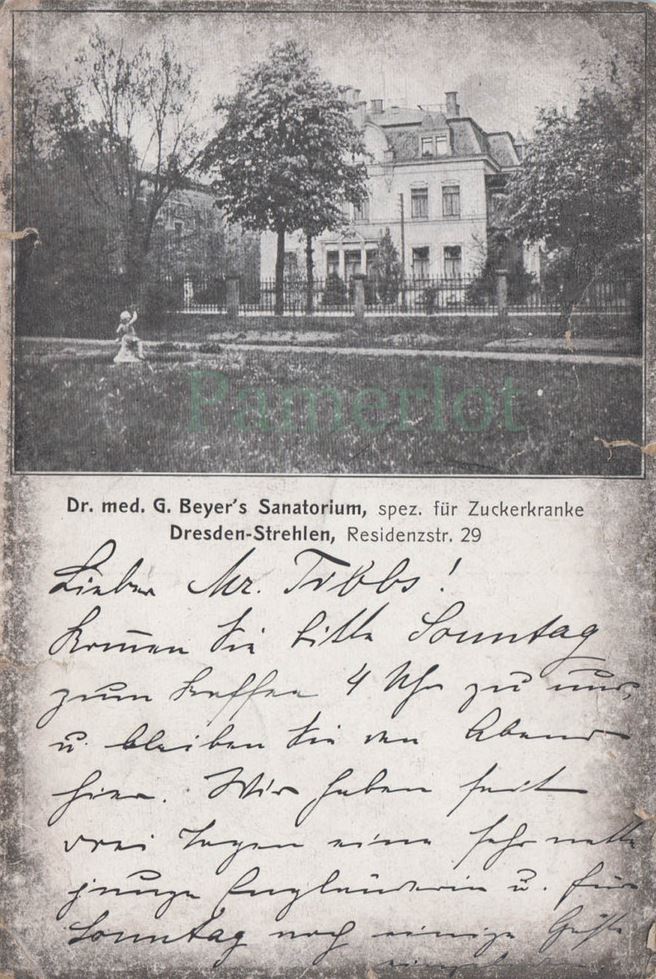 Pamerlot
Dr. med. G. Beyer's Sanatorium, spez. für Zuckerkranke
Dresden-Strehlen, Residenzstr. 29
Lieber Mr. Tibbs!
Kom̅en Sie bitte Sonntag
zum Kaffee 4 Uhr zu uns,
u. bleiben Sie den Abend
hier. Wir haben seit
drei Tagen eine sehr nette
junge Engländerin u. für
Sonntag noch einige Gäste